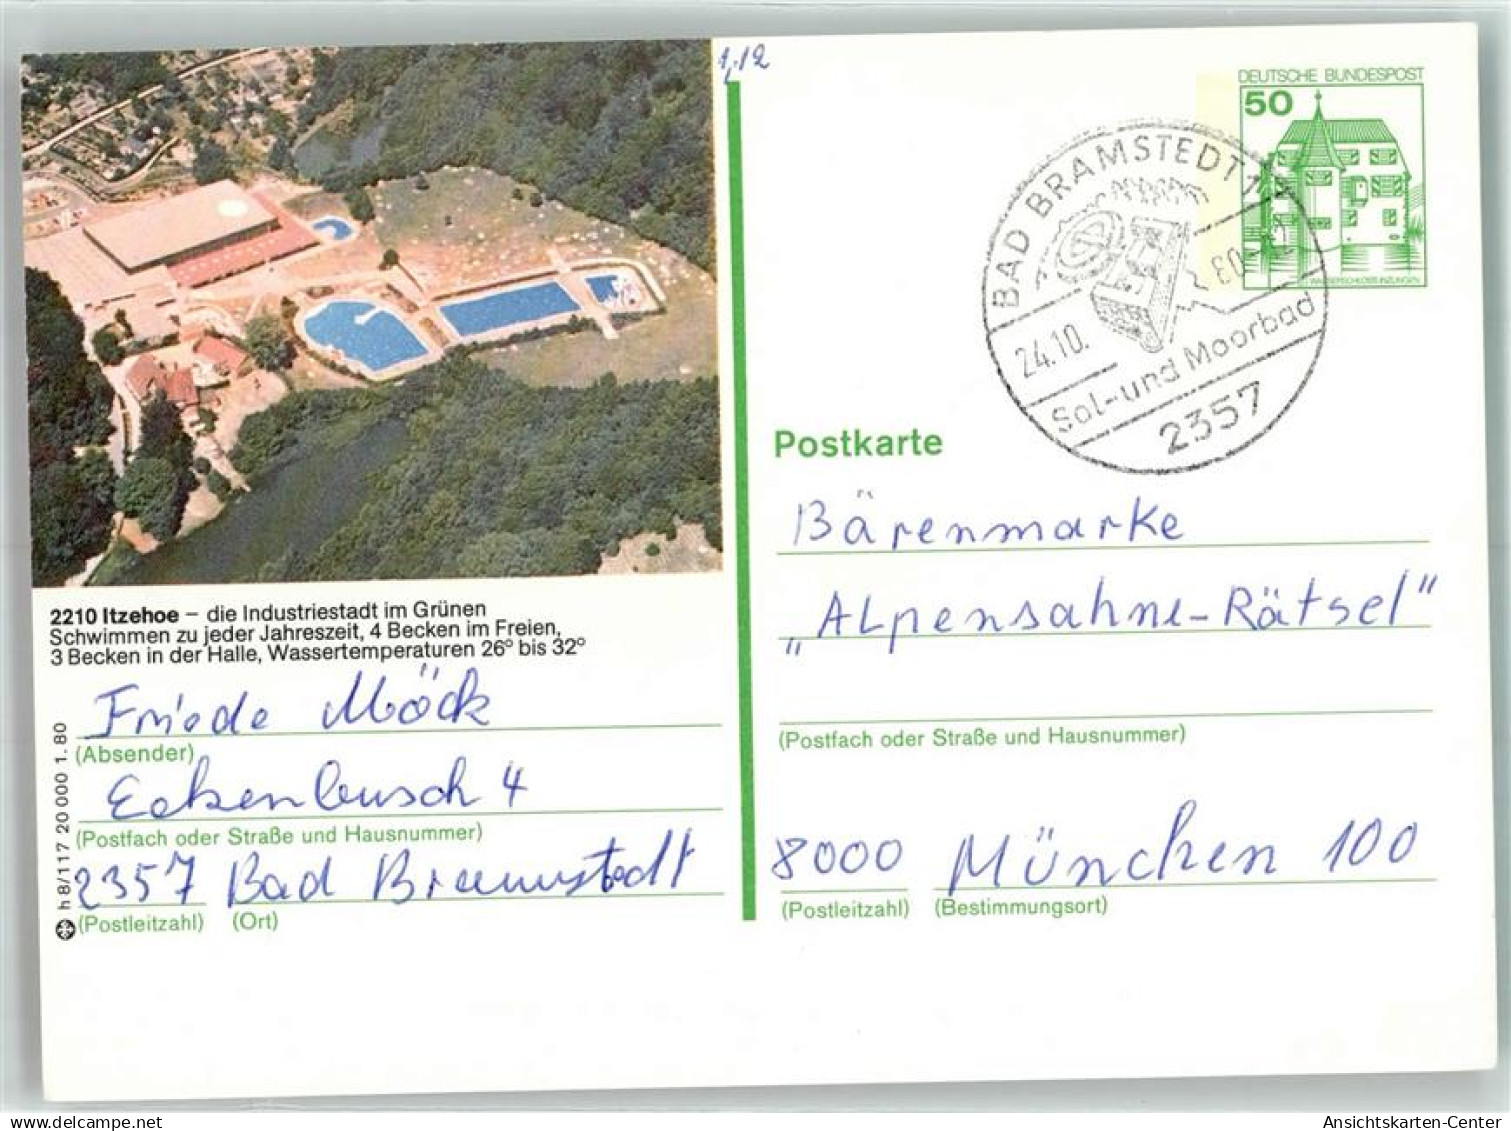 1.12
DEUTSCHE BUNDESPOST
50
WASSERSCHLOSS INZLINGEN
BAD BRAMSTEDT 1
24.10.
Sol- und Moorbad
2357
Postkarte
Bärenmarke
„Alpensahne-Rätsel“
(Postfach oder Straße und Hausnummer)
8000 München 100
(Postleitzahl) (Bestimmungsort)
2210 Itzehoe – die Industriestadt im Grünen
Schwimmen zu jeder Jahreszeit, 4 Becken im Freien,
3 Becken in der Halle, Wassertemperaturen 26° bis 32°
Friede Möck
(Absender)
Eckenbusch 4
(Postfach oder Straße und Hausnummer)
2357 Bad Bramstedt
(Postleitzahl) (Ort)
h 8/117 20 000 1.80
delcampe.net
Ansichtskarten-Center